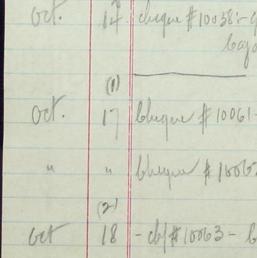 Oct. 14 cheque #10038:-
(1)
Oct. 17 Cheque #10061-
" " Cheque #1006
(2)
Oct 18 - ch/#10063 -